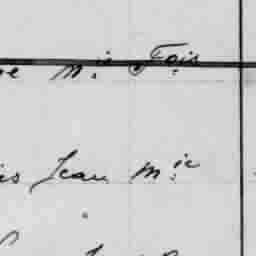 ne M.ie Fois
is Jean M.ie